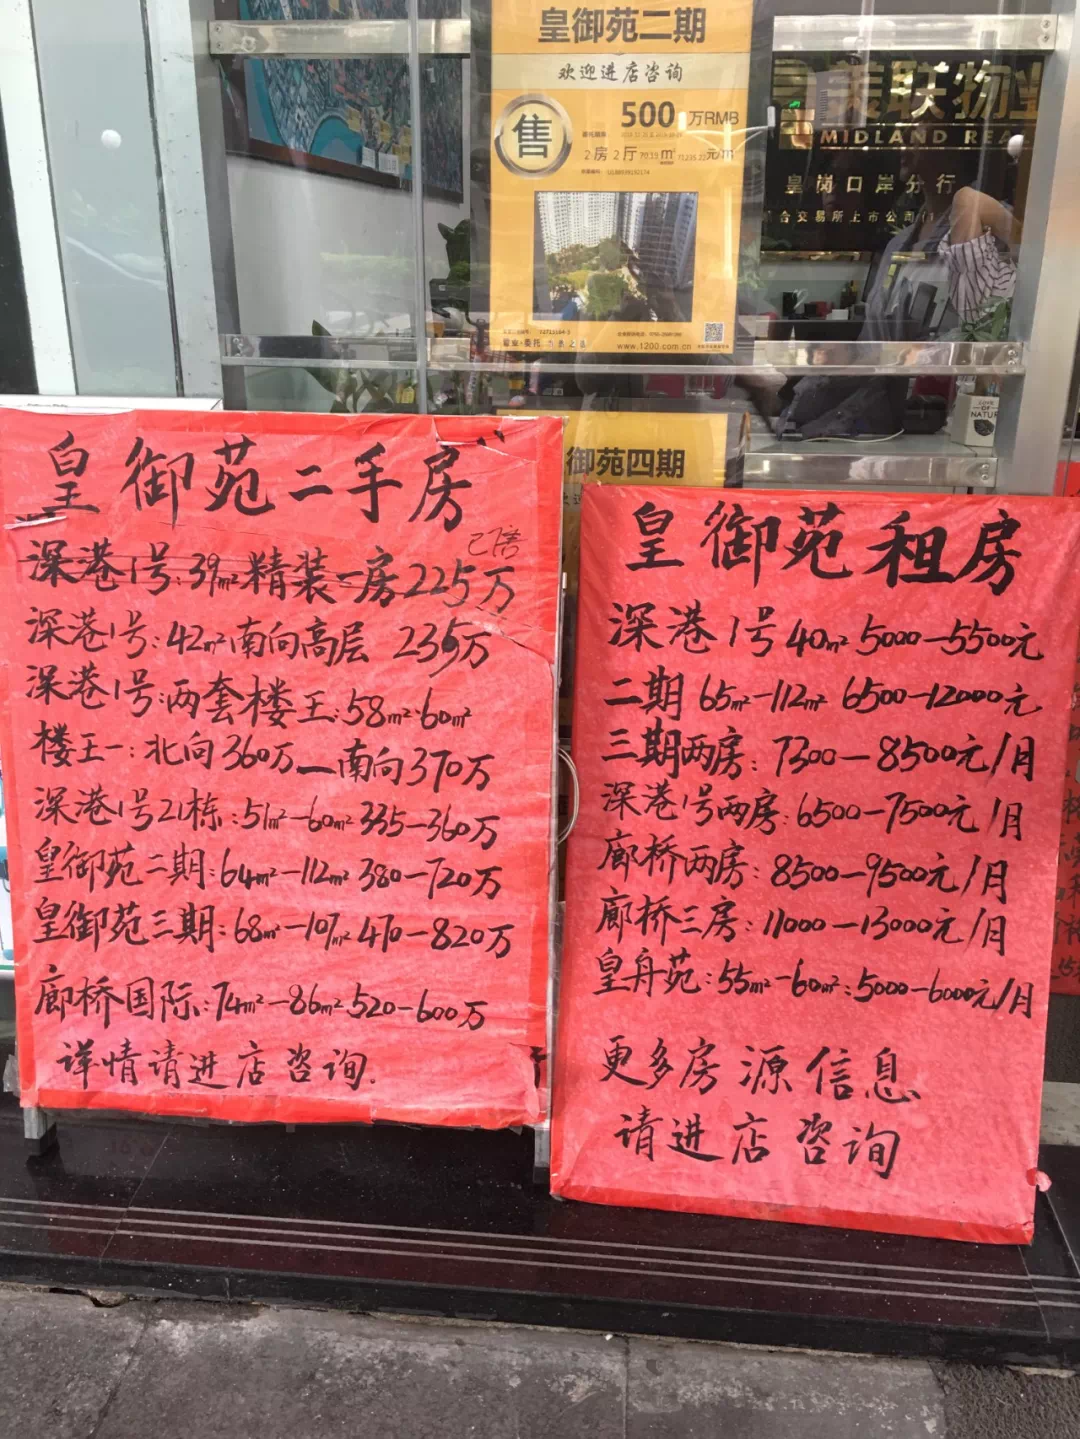 皇御苑二期
欢迎进店咨询
售
500万RMB
2房2厅 70.19m²
www.1200.com.cn
美联物业
MIDLAND REA
皇岗口岸分行
合交易所上市公司
御苑四期
皇御苑二手房
已售
深港1号:39m²精装一房225万
深港1号:42m²南向高层 235万
深港1号:两套楼王:58m²·60m²
楼王一:北向360万—南向370万
深港1号21栋:51m²-60m² 335-360万
皇御苑二期:64m²-112m² 380-720万
皇御苑三期:68m²-107m² 470-820万
廊桥国际:74m²-86m² 520-600万
详情请进店咨询.
皇御苑租房
深港1号40m² 5000-5500元
二期 65m²-112m² 6500-12000元
三期两房:7300-8500元/月
深港1号两房:6500-7500元/月
廊桥两房:8500-9500元/月
廊桥三房:11000-13000元/月
皇舟苑:55m²-60m²:5000-6000元/月
更多房源信息
请进店咨询